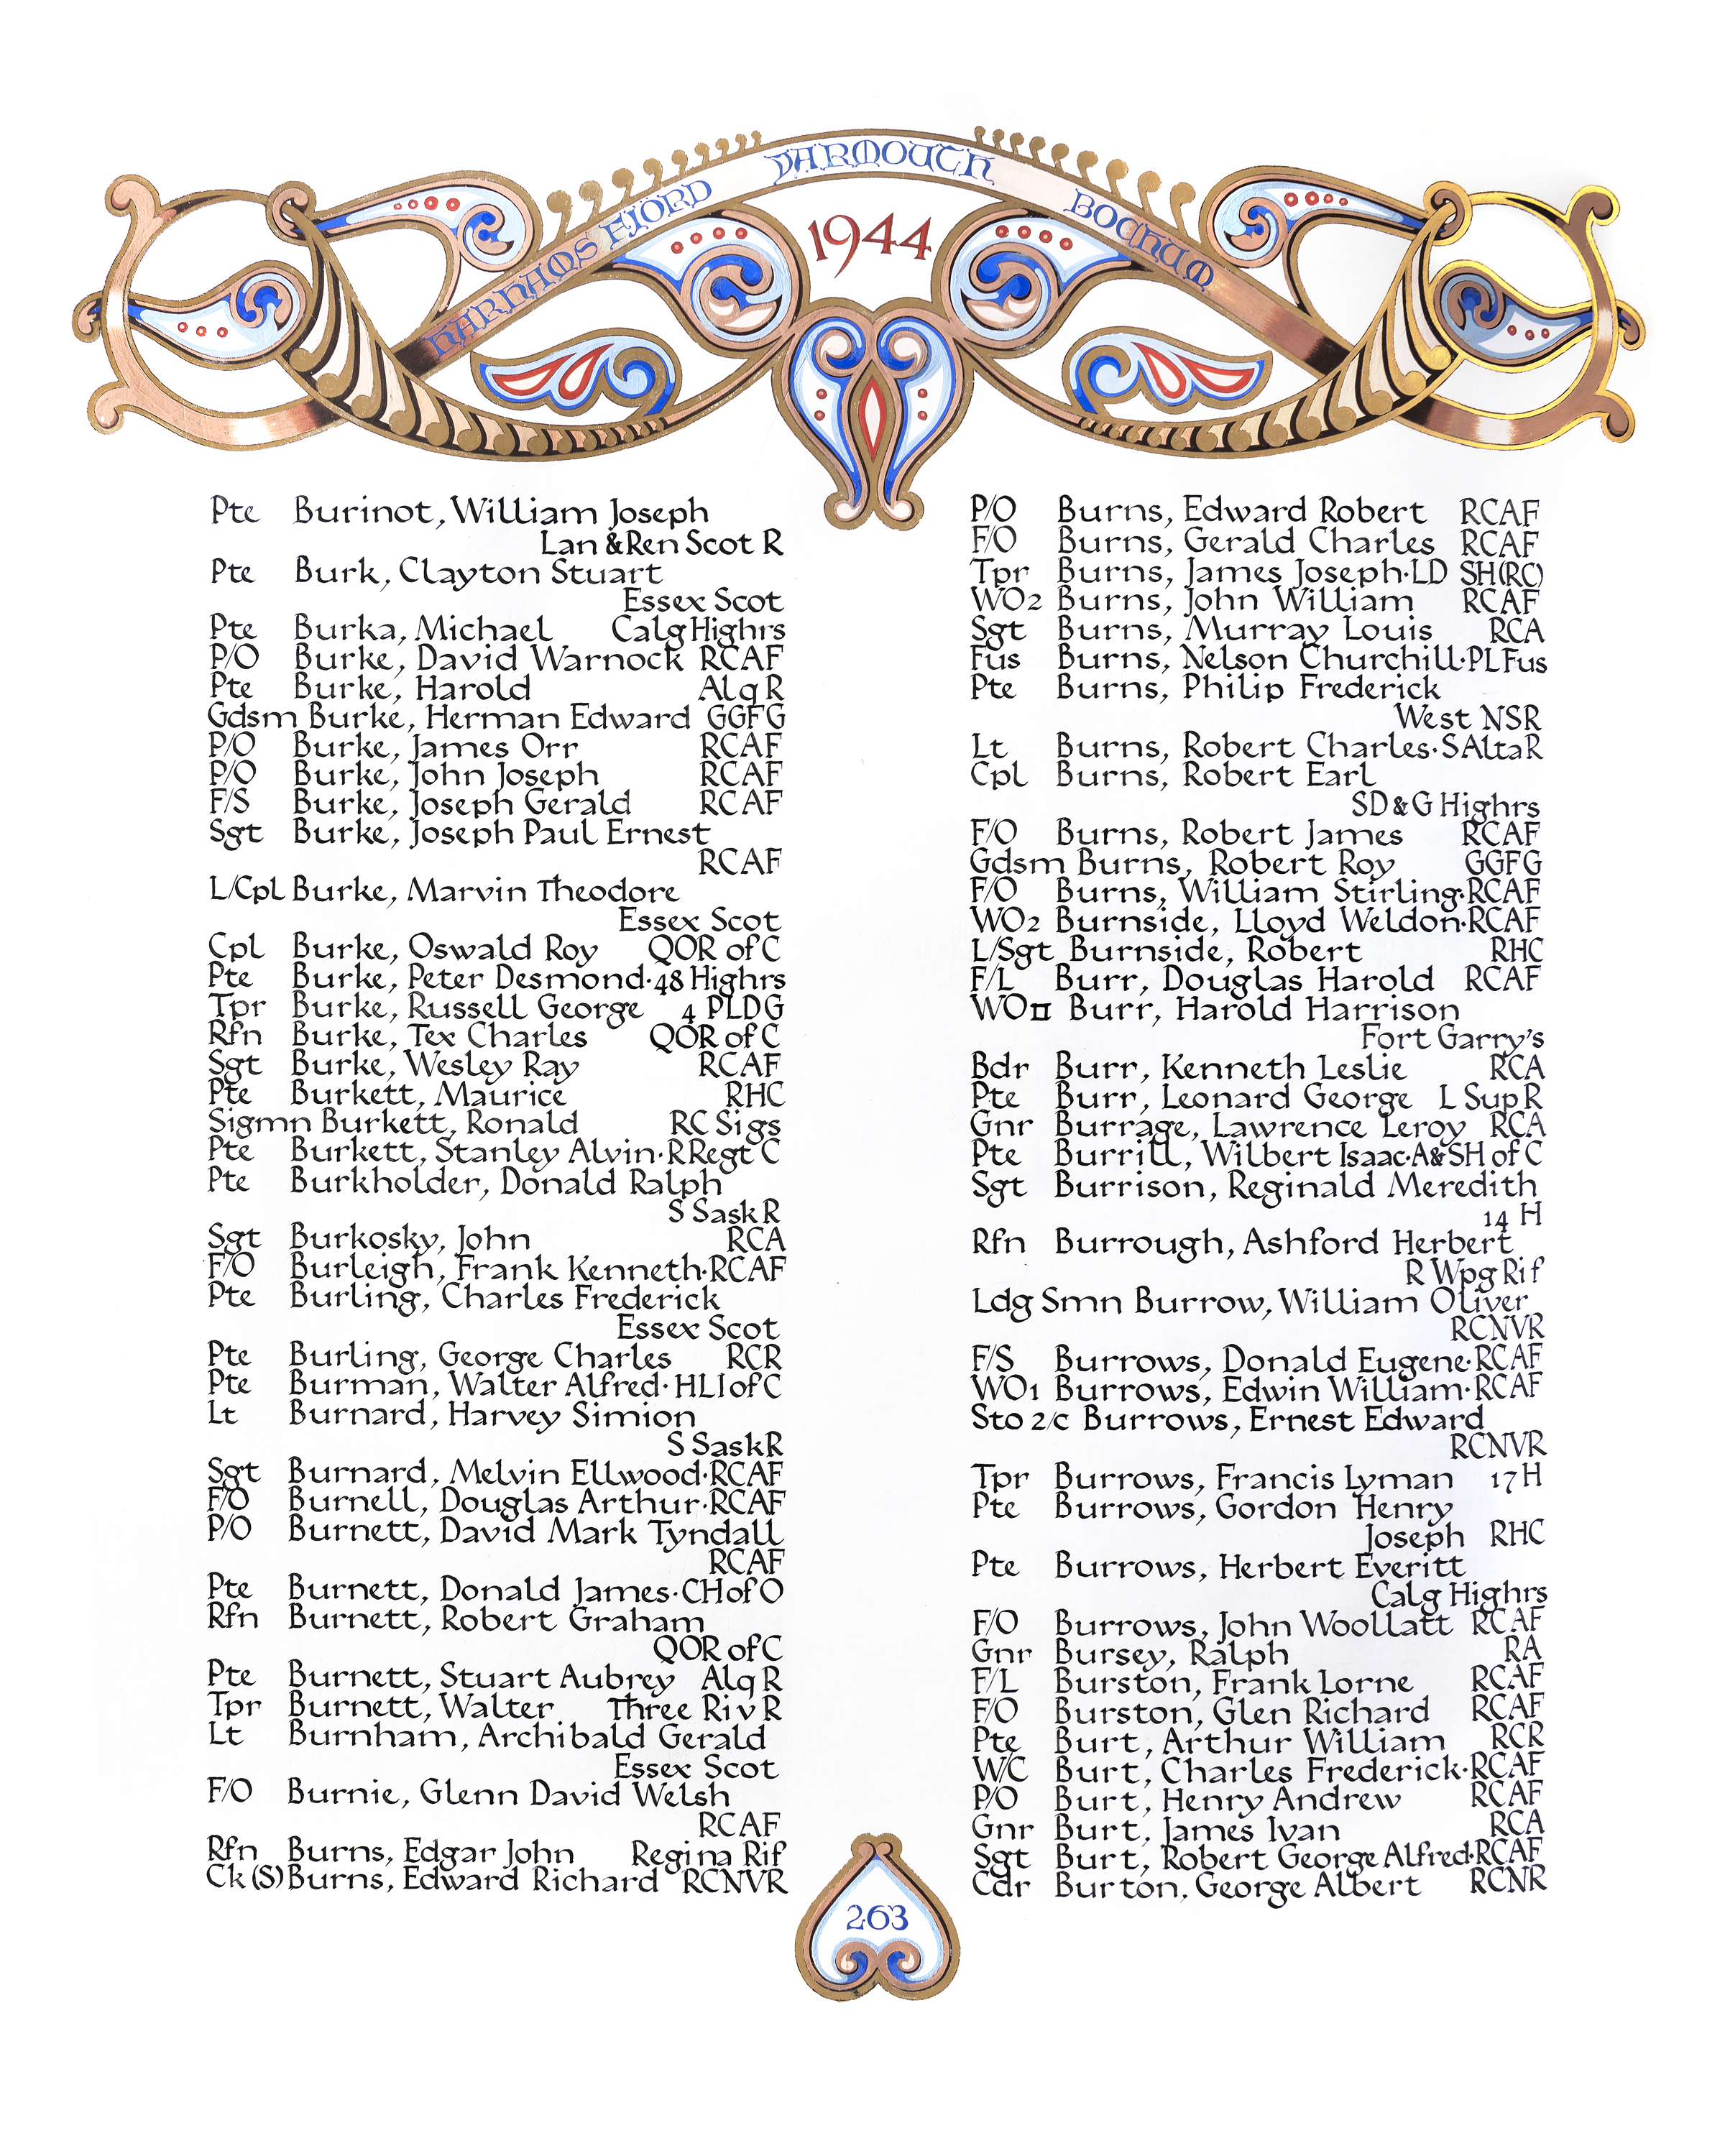 HARHAMS FJORD YARMOUTH BOCHUM
1944
Pte Burinot, William Joseph
Lan & Ren Scot R
Pte Burk, Clayton Stuart
Essex Scot
Pte Burka, Michael Calg Highrs
P/O Burke, David Warnock RCAF
Pte Burke, Harold Alq R
Gdsm Burke, Herman Edward GGFG
P/O Burke, James Orr RCAF
P/O Burke, John Joseph RCAF
F/S Burke, Joseph Gerald RCAF
Sgt Burke, Joseph Paul Ernest
RCAF
L/Cpl Burke, Marvin Theodore
Essex Scot
Cpl Burke, Oswald Roy QOR of C
Pte Burke, Peter Desmond·48 Highrs
Tpr Burke, Russell George 4 PLDG
Rfn Burke, Tex Charles QOR of C
Sgt Burke, Wesley Ray RCAF
Pte Burkett, Maurice RHC
Sigmn Burkett, Ronald RC Sigs
Pte Burkett, Stanley Alvin·R Regt C
Pte Burkholder, Donald Ralph
S Sask R
Sgt Burkosky, John RCA
F/O Burleigh, Frank Kenneth·RCAF
Pte Burling, Charles Frederick
Essex Scot
Pte Burling, George Charles RCR
Pte Burman, Walter Alfred·HLI of C
Lt Burnard, Harvey Simion
S Sask R
Sgt Burnard, Melvin Ellwood·RCAF
F/O Burnell, Douglas Arthur·RCAF
P/O Burnett, David Mark Tyndall
RCAF
Pte Burnett, Donald James·CH of O
Rfn Burnett, Robert Graham
QOR of C
Pte Burnett, Stuart Aubrey Alq R
Tpr Burnett, Walter Three Riv R
Lt Burnham, Archibald Gerald
Essex Scot
F/O Burnie, Glenn David Welsh
RCAF
Rfn Burns, Edgar John Regina Rif
Ck (S) Burns, Edward Richard RCNVR
P/O Burns, Edward Robert RCAF
F/O Burns, Gerald Charles RCAF
Tpr Burns, James Joseph·LD SH(RC)
WO2 Burns, John William RCAF
Sgt Burns, Murray Louis RCA
Fus Burns, Nelson Churchill·PL Fus
Pte Burns, Philip Frederick
West NSR
Lt Burns, Robert Charles·S Alta R
Cpl Burns, Robert Earl
SD & G Highrs
F/O Burns, Robert James RCAF
Gdsm Burns, Robert Roy GGFG
F/O Burns, William Stirling·RCAF
WO2 Burnside, Lloyd Weldon·RCAF
L/Sgt Burnside, Robert RHC
F/L Burr, Douglas Harold RCAF
WOII Burr, Harold Harrison
Fort Garry's
Bdr Burr, Kenneth Leslie RCA
Pte Burr, Leonard George L Sup R
Gnr Burrage, Lawrence Leroy RCA
Pte Burrill, Wilbert Isaac·A&SH of C
Sgt Burrison, Reginald Meredith
14 H
Rfn Burrough, Ashford Herbert
R Wpg Rif
Ldg Smn Burrow, William Oliver
RCNVR
F/S Burrows, Donald Eugene·RCAF
WO1 Burrows, Edwin William·RCAF
Sto 2/c Burrows, Ernest Edward
RCNVR
Tpr Burrows, Francis Lyman 17 H
Pte Burrows, Gordon Henry
Joseph RHC
Pte Burrows, Herbert Everitt
Calg Highrs
F/O Burrows, John Woollatt RCAF
Gnr Bursey, Ralph RA
F/L Burston, Frank Lorne RCAF
F/O Burston, Glen Richard RCAF
Pte Burt, Arthur William RCR
W/C Burt, Charles Frederick·RCAF
P/O Burt, Henry Andrew RCAF
Gnr Burt, James Ivan RCA
Sgt Burt, Robert George Alfred·RCAF
Cdr Burton, George Albert RCNR
263